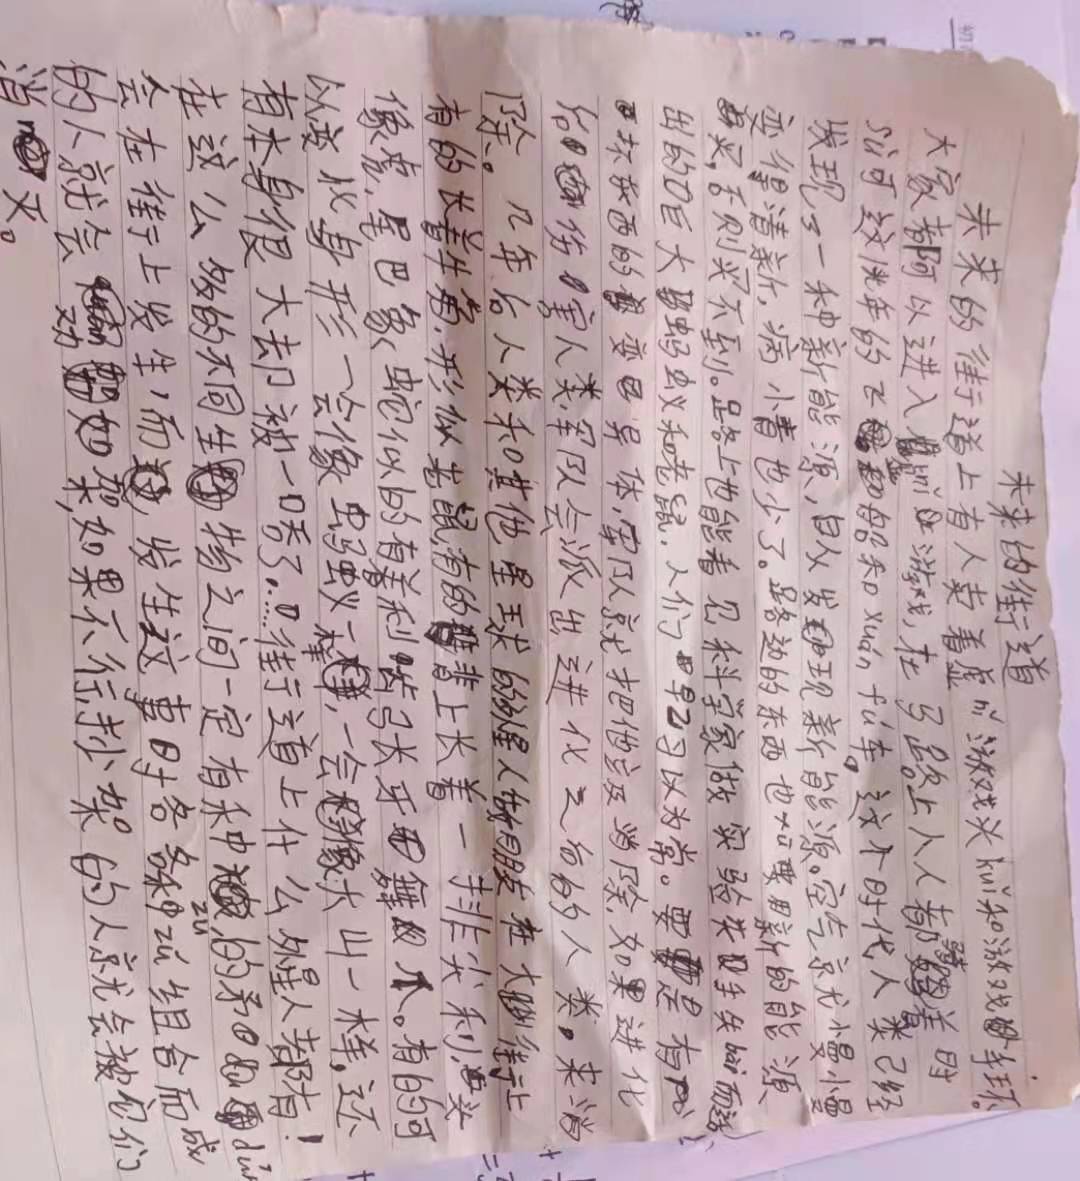 未来的街道
未来的街道上有人卖着虚yǐ游戏头kuī和游戏手环。
大家都可以进入游戏,在马路上人人都坐着时
suí可变性的飞船和xuán fú车。这个时代人类已经
发现了一种新能源,自从发现新能源。空气就慢慢
变得清新,病小毒也少了。路边的东西也需要用新的能源
买,否则买不到。路上也能看见科学家做实验失
出的巨大蚂蚁和老鼠,人们早已习以为常。要是有
坏东西变异体,军队就把他们当除,如果进化
伤害人类,军队会派出进化之后的人类。来消
除。几年后人类和其他星球的外星人做朋友在大街上
有的长着牛角,形似老鼠有的背上长着一排尖利,头
像鹰,尾巴象蛇似的有着利齿长牙。有的可
以变化身形一会像蚂蚁一样,一会像大山一样,还
有本身很大却被一口吞了……街道上什么外星人都有!
在这么多的不同生物之间一定有种zú的矛盾
会在街上发生,而发生这事时各种zú组合而成
的人就会劝架,如果不行打架的人就会被它们
消灭。